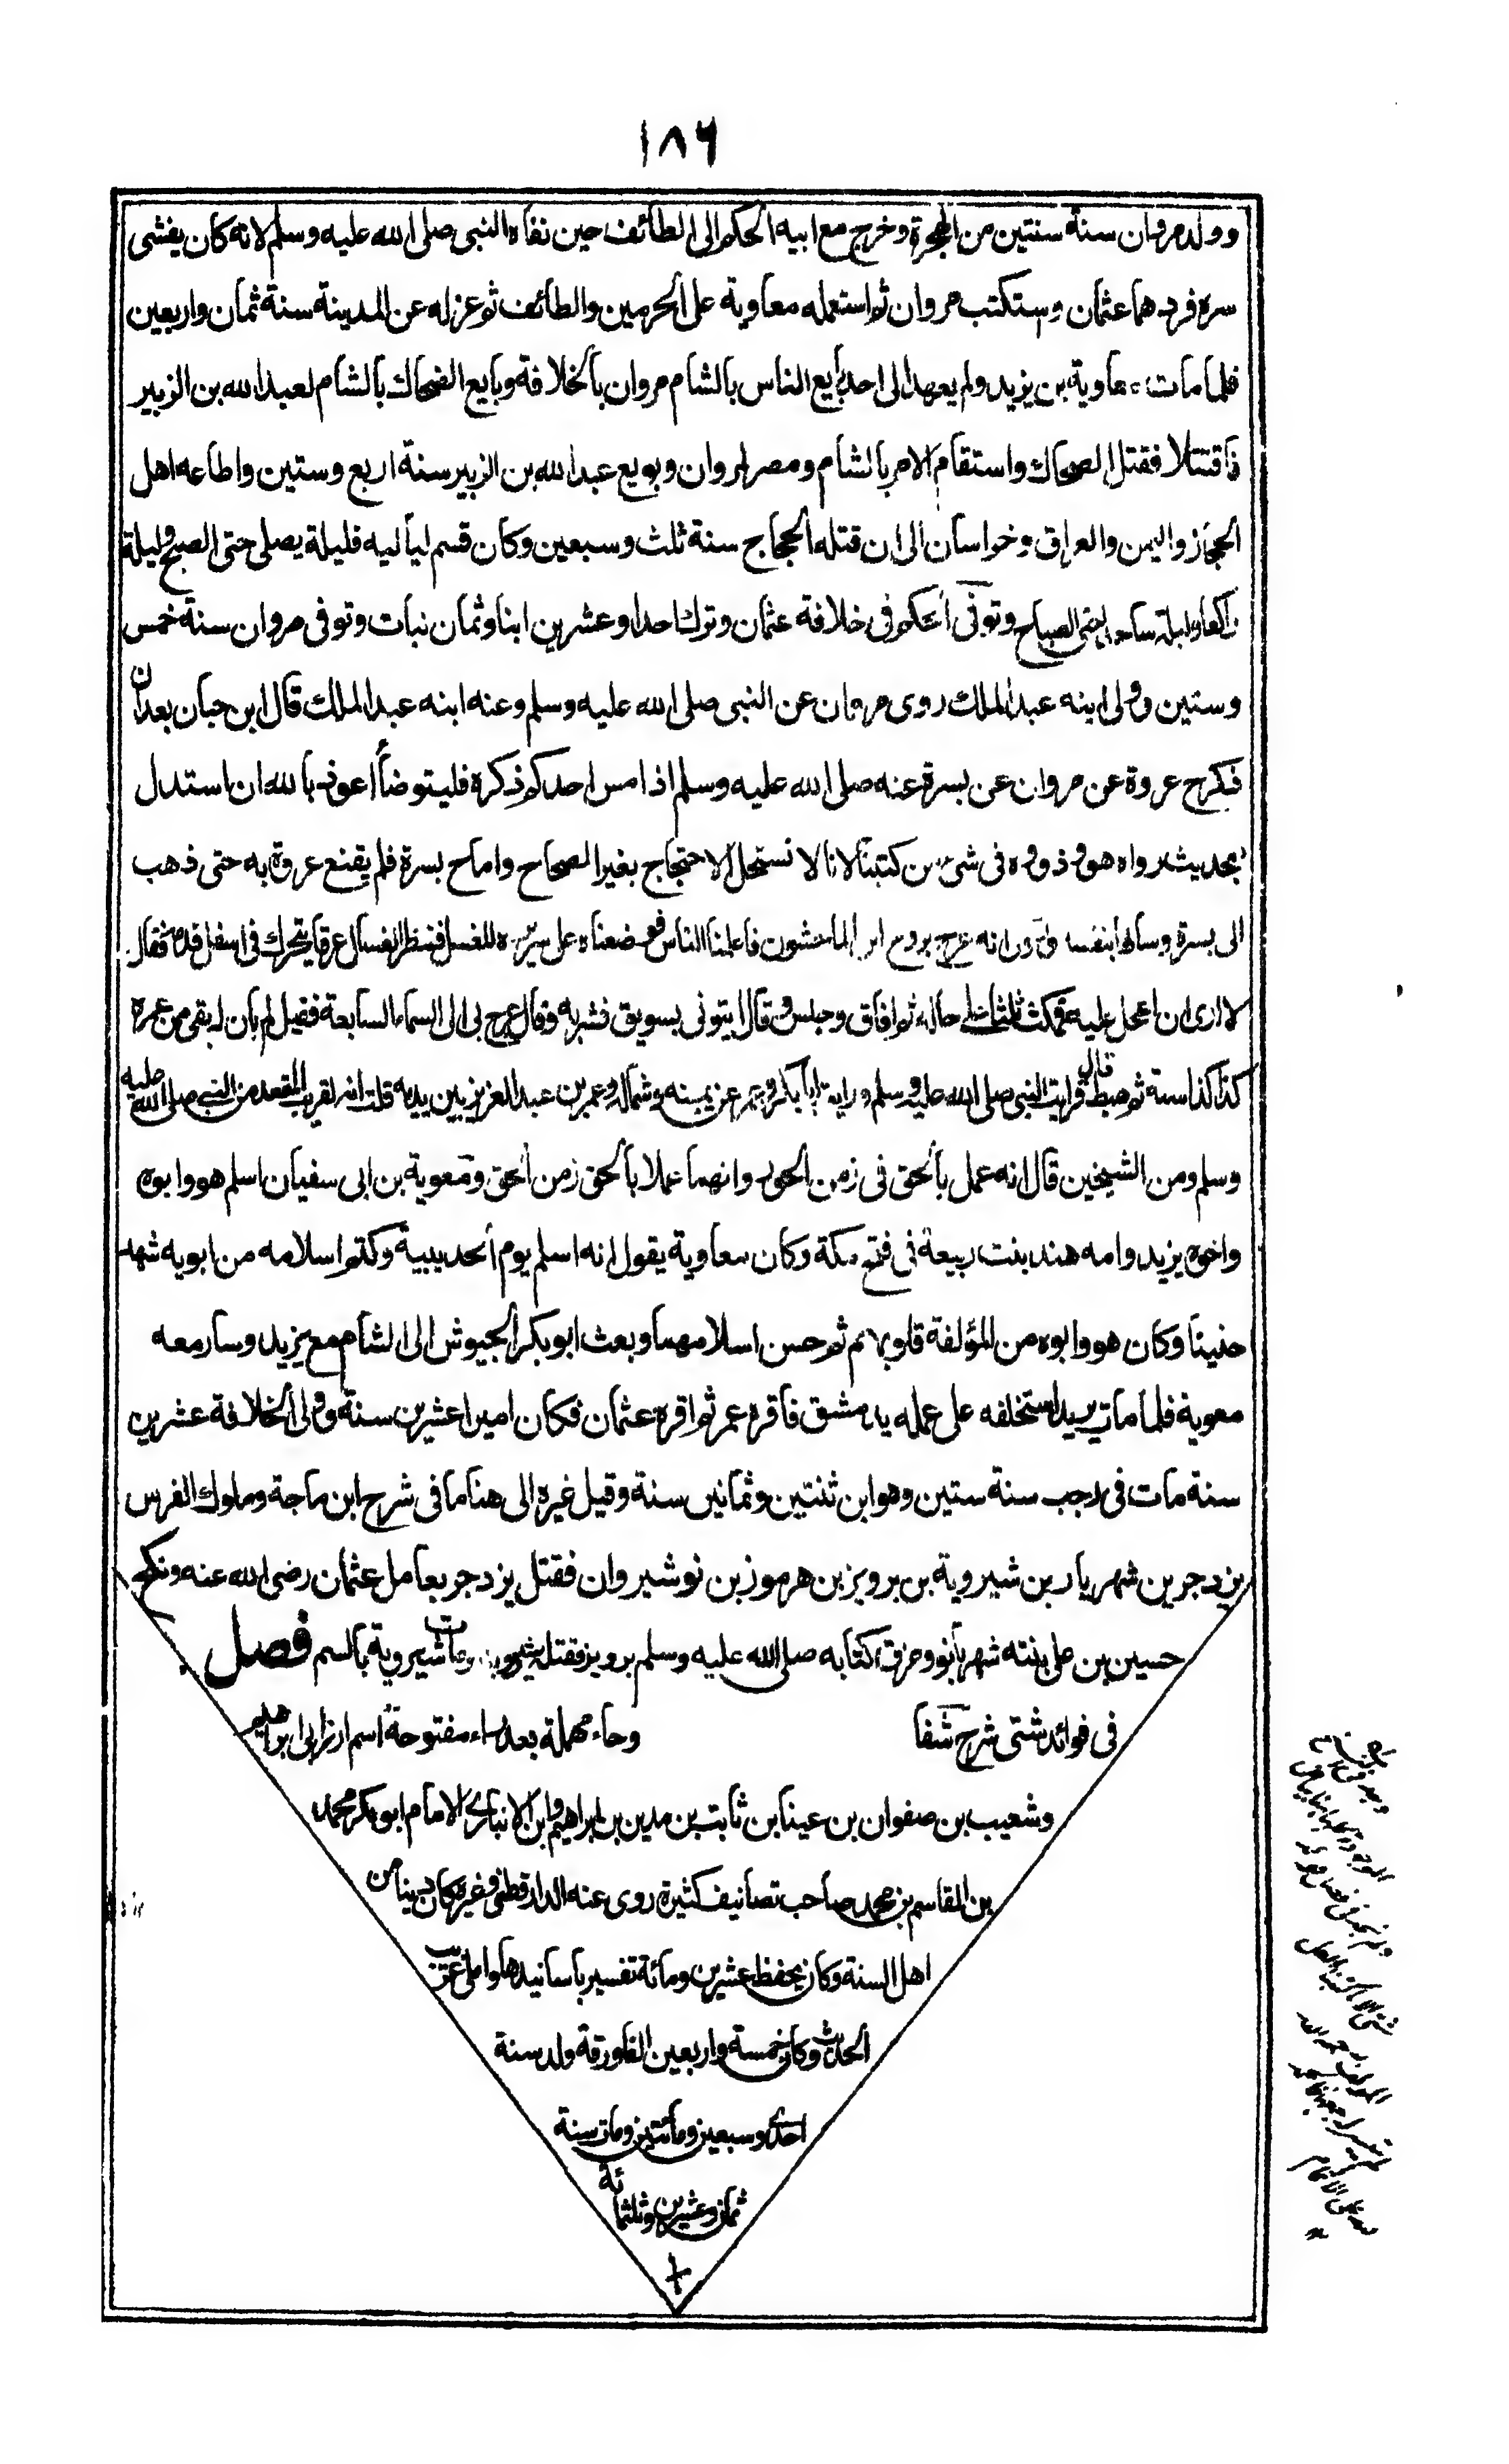 ١٨٦
وولد مروان سنة سنتين من الهجرة وخرج مع ابيه الحكم الى الطائف حين نفاه النبى صلى الله عليه وسلم لانه كان يفشى
سره فردهما عثمان وستكتب مروان ثم استعمله معاوية على الحرمين والطائف ثم عزله عن المدينة سنة ثمان واربعين
فلما مات معاوية بن يزيد ولم يعهد الى احد بايع الناس بالشام مروان بالخلافة وبايع الضحاك بالشام لعبد الله بن الزبير
فاقتتلا فقتل الضحاك واستقام الامر بالشام ومصر لمروان وبويع عبد الله بن الزبير سنة اربع وستين واطاعه اهل
الحجاز واليمن والعراق وخراسان الى ان قتله الحجاج سنة ثلث وسبعين وكان قسم لياليه فليلة يصلى حتى الصبح وليلة
راكعا وليلة ساجدا حتى الصباح وتوفى الحكم فى خلافة عثمان وترك احدا وعشرين ابنا وثمان بنات وتوفى مروان سنة خمس
وستين وولى ابنه عبد الملك روى مروان عن النبى صلى الله عليه وسلم وعنه ابنه عبد الملك قال ابن حبان بعد ان
ذكر ح عروة عن مروان عن بسرة عنه صلى الله عليه وسلم اذا مس احدكم ذكره فليتوضأ اعوذ بالله ان استدل
بحديث رواه هو وذووه فى شىء من كتبنا لانا لا نستحل الاحتجاج بغير الصحاح واما ح بسرة فلم يقنع عروة به حتى ذهب
الى بسرة وسألها بنفسه انه عرج بروح ابن الماجشون فاعلمنا الناس فوضعناه على سريره للغسل فنظر الغسال عرقا يتحرك فى اسفل قدمه فقال
لا ارى ان اعجل عليه فمكث ثلثا على حاله ثم افاق وجلس وقال ايتونى بسويق فشربه وقال عرج بى الى السماء السابعة فقيل لم يأن له بقى من عمره
كذا كذا سنة ثم هبط قال فرايت النبى صلى الله عليه وسلم ورايت ابا بكر وعمر عن يمينه وشماله وعمر بن عبد العزيز بين يديه قلت انه لقريب المقعد من النبى صلى الله عليه
وسلم ومن الشيخين قال انه عمل بالحق فى زمن الجور وانهما عملا بالحق زمن الحق ومعوية بن ابى سفيان اسلم هو وابوه
واخوه يزيد وامه هند بنت ربيعة فى فتح مكة وكان معاوية يقول انه اسلم يوم الحديبية وكتم اسلامه من ابويه شهد
حنينا وكان هو وابوه من المؤلفة قلوبهم ثم حسن اسلامهما وبعث ابو بكر الجيوش الى الشام مع يزيد وسار معه
معوية فلما مات يزيد استخلفه على عمله بدمشق فاقره عمر ثم اقره عثمان فكان اميرا عشرين سنة وولى الخلافة عشرين
سنة مات فى رجب سنة ستين وهو ابن ثنتين وثمانين سنة وقيل غيره الى هنا ما فى شرح ابن ماجة وملوك الفرس
يزدجر بن شهريار بن شيروية بن برويز بن هرموز بن نوشيروان فقتل يزدجر بعامل عثمان رضى الله عنه ونكح
حسين بن على بنته شهربانو ومزق كتابه صلى الله عليه وسلم برويز فقتله شيرويه ومات شيروية بالسم فصل
فى فوائد شتى شرح شفا وحاء مهملة بعد راء مفتوحة اسم ارز ابى ابراهيم
وشعيب بن صفوان بن عينا بن ثابت بن مدين بن ابراهيم وابن الانبارى الامام ابو بكر محمد
بن القاسم بن محمد صاحب تصانيف كثيرة روى عنه الدارقطنى وغيره كان دينا من
اهل السنة وكان يحفظ عشرين ومائة تفسير باسانيدها واملى غريب
الحديث وكان خمسة واربعين الف ورقة ولد سنة
احدى وسبعين ومائتين ومات سنة
ثمان وعشرين وثلثمائة